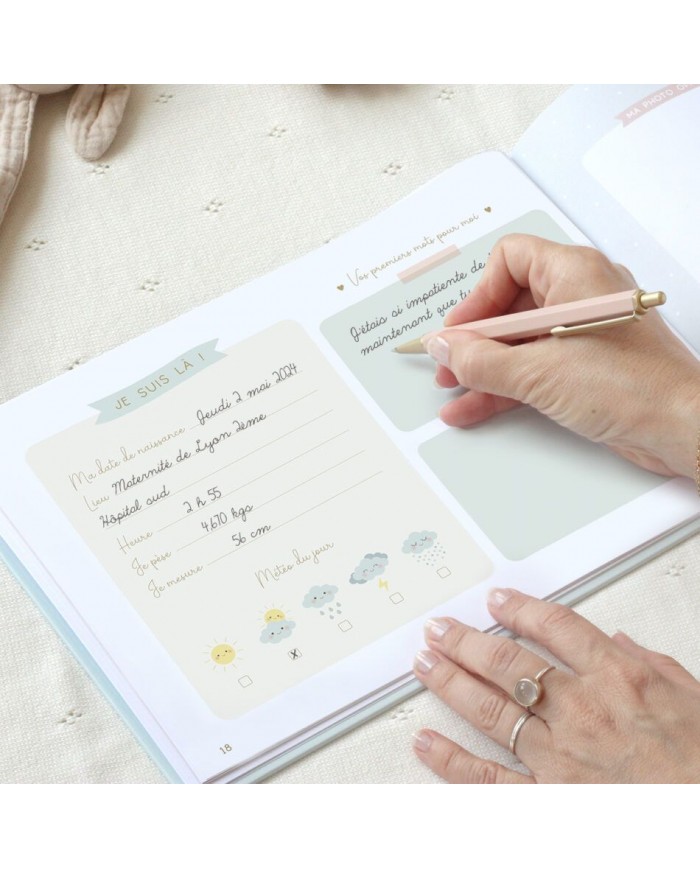 JE SUIS LÀ !
Ma date de naissance Jeudi 2 mai 2024
Lieu Maternité de Lyon 2ème
Hôpital sud
Heure 2 h 55
Je pèse 4.670 kgs
Je mesure 56 cm
Météo du jour
X
18
Vos premiers mots pour moi
J'étais si impatiente de
maintenant que tu
MA PHOTO